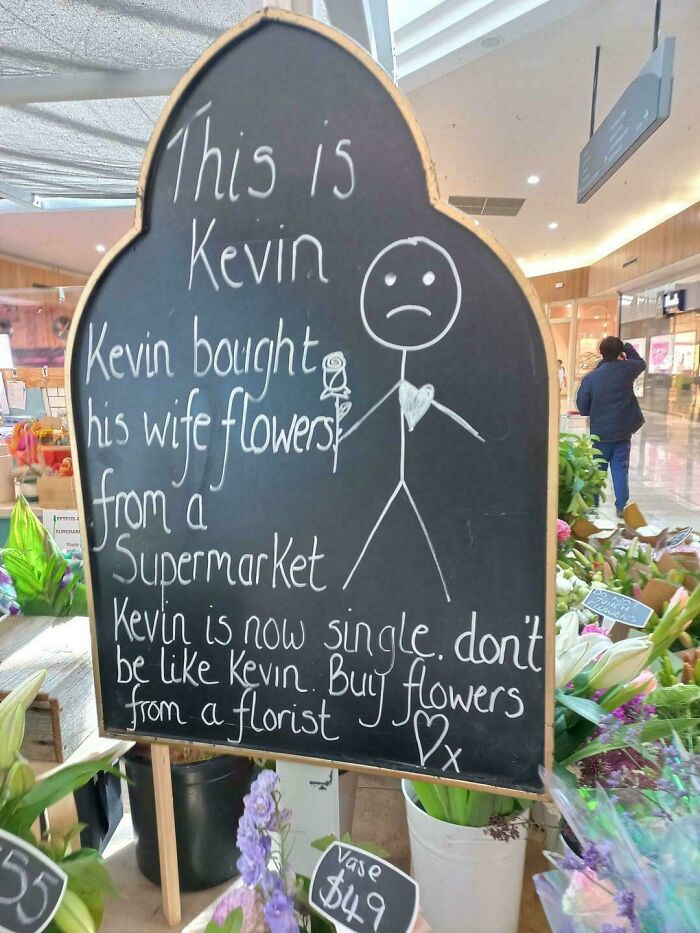 This is
Kevin
Kevin bought
his wife flowers
from a
Supermarket
Kevin is now single. don't
be like Kevin. Buy flowers
from a florist
x
EFTPOS
SURCHAR
DO NOT
TOUCH
FLOWERS
55
Vase
$49